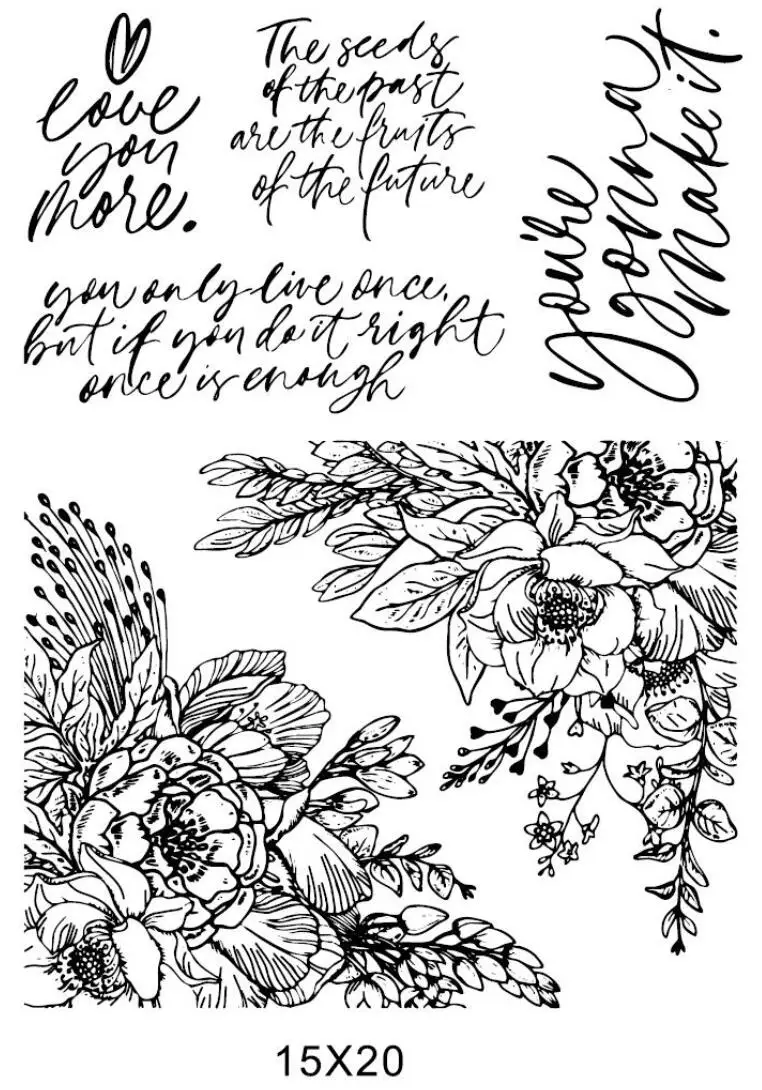 love
you
more.
The seeds
of the past
are the fruits
of the future
you're
gonna
make it.
you only live once,
but if you do it right
once is enough
15X20